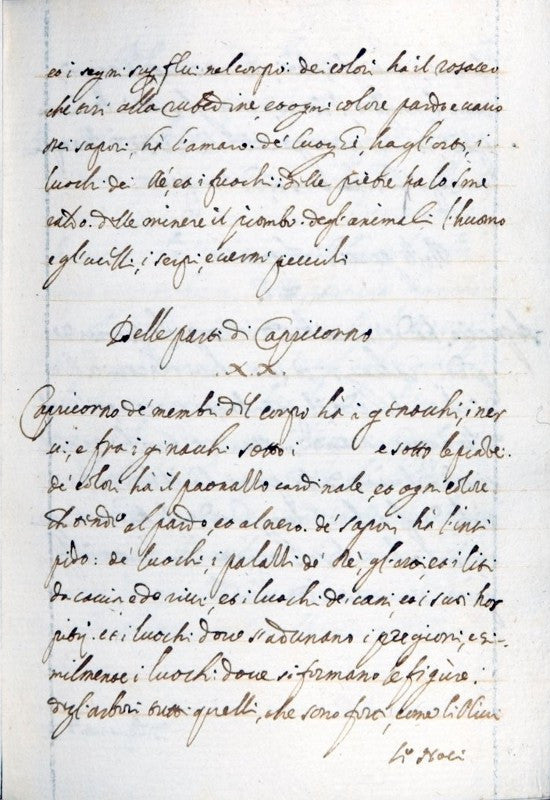 et i segni sup.flui nel corpo. de i colori ha il rosaceo
che tiri alla rubedine, et ogni colore pardo e vario
dei sapori, hà l'amaro. de' luoghi, ha gl'orti, i
luochi dei Rè, et i fuochi: delle pietre ha lo sme
raldo. delle minere il piombo. degl'animali l'huomo
e gl'uccelli, i serpi, e vermi piccoli
Delle parti di Capricorno
.X.X.
Capricorno de' membri del corpo hà i ginocchi, i ner
vi, e frà i ginocchi sotto i e sotto le piante.
de' colori hà il paonazzo cardinale et ogni colore
che tende al pardo, et al nero. de' sapori hà l'insi
pido: de' luochi, i palazzi de' Rè, gl'orti, et i liti
da caccia e da rivi, et i luochi dei cani, et i suoi hos
pitij. et i luochi dove si adunano i pregioni, e si-
milmente i luochi dove si formano le figure.
degl'arbori tutti quelli, che sono forti, come li Olivi
li Noci